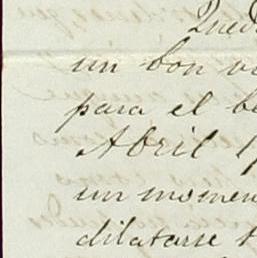 Qued
un bon v
para el b
Abril 1
un momen
dilatarse t